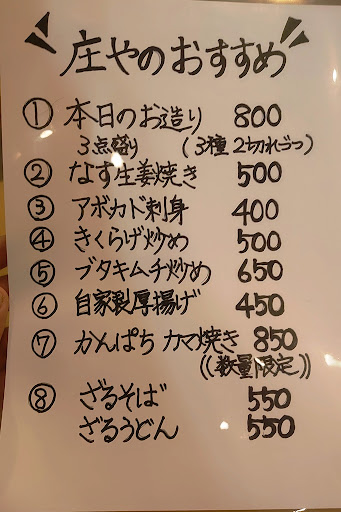 庄やのおすすめ
① 本日のお造り 800
3点盛り (3種 2切れづつ)
② なす生姜焼き 500
③ アボカド刺身 400
④ きくらげ炒め 500
⑤ ブタキムチ炒め 650
⑥ 自家製厚揚げ 450
⑦ かんぱち カマ焼き 850
((数量限定))
⑧ ざるそば 550
ざるうどん 550